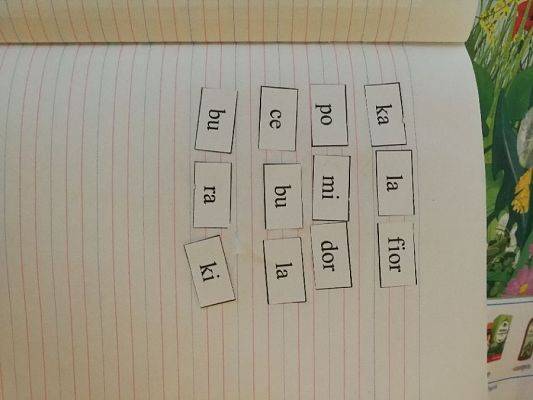 ka la fior
po mi dor
ce bu la
bu ra ki